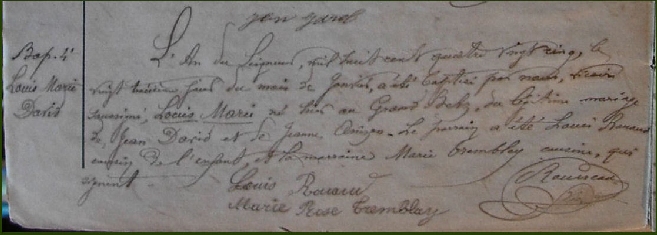 Bap. 4
Louis Marie
David
L'An du Seigneur, mil huit cent quatre vingt cinq, le
vingt jour du mois de Janvier, a été baptisé par nous, vicaire
soussigné, Louis Marie né hier au Grand du légitime mariage
de Jean David et de Jeanne Le parrain a été Louis Renaud
cousin de l'enfant et la marraine Marie tremblay cousine, qui
signent
Louis Renaud
Marie Rose Tremblay
Rousseau